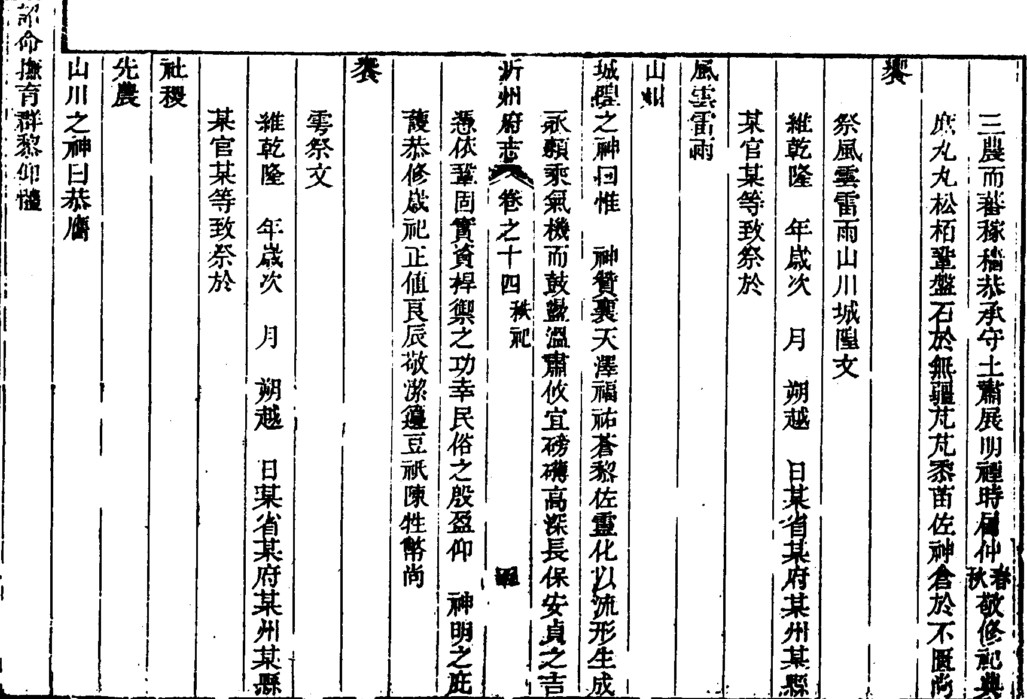 三農而蕃稼穡恭承守土肅展明禋時屆仲春秋敬修祀典
庶丸丸松栢鞏盤石於無疆芃芃黍苗佐神倉於不匱尚
饗
祭風雲雷雨山川城隍文
維乾隆　年歲次　月　朔越　日某省某府某州某縣
某官某等致祭於
風雲雷雨
山川
城隍之神曰惟　神贊襄天澤福祐蒼黎佐靈化以流形生成
永賴乘氣機而鼓盪溫肅攸宜磅礴高深長保安貞之吉
沂州府志　卷之十四　秩祀
憑依鞏固實資捍禦之功幸民俗之殷盈仰　神明之庇
護恭修歲祀正值良辰敬潔籩豆祇陳牲幣尚
饗
雩祭文
維乾隆　年歲次　月　朔越　日某省某府某州某縣
某官某等致祭於
社稷
先農
山川之神曰恭膺
詔命撫育群黎仰體